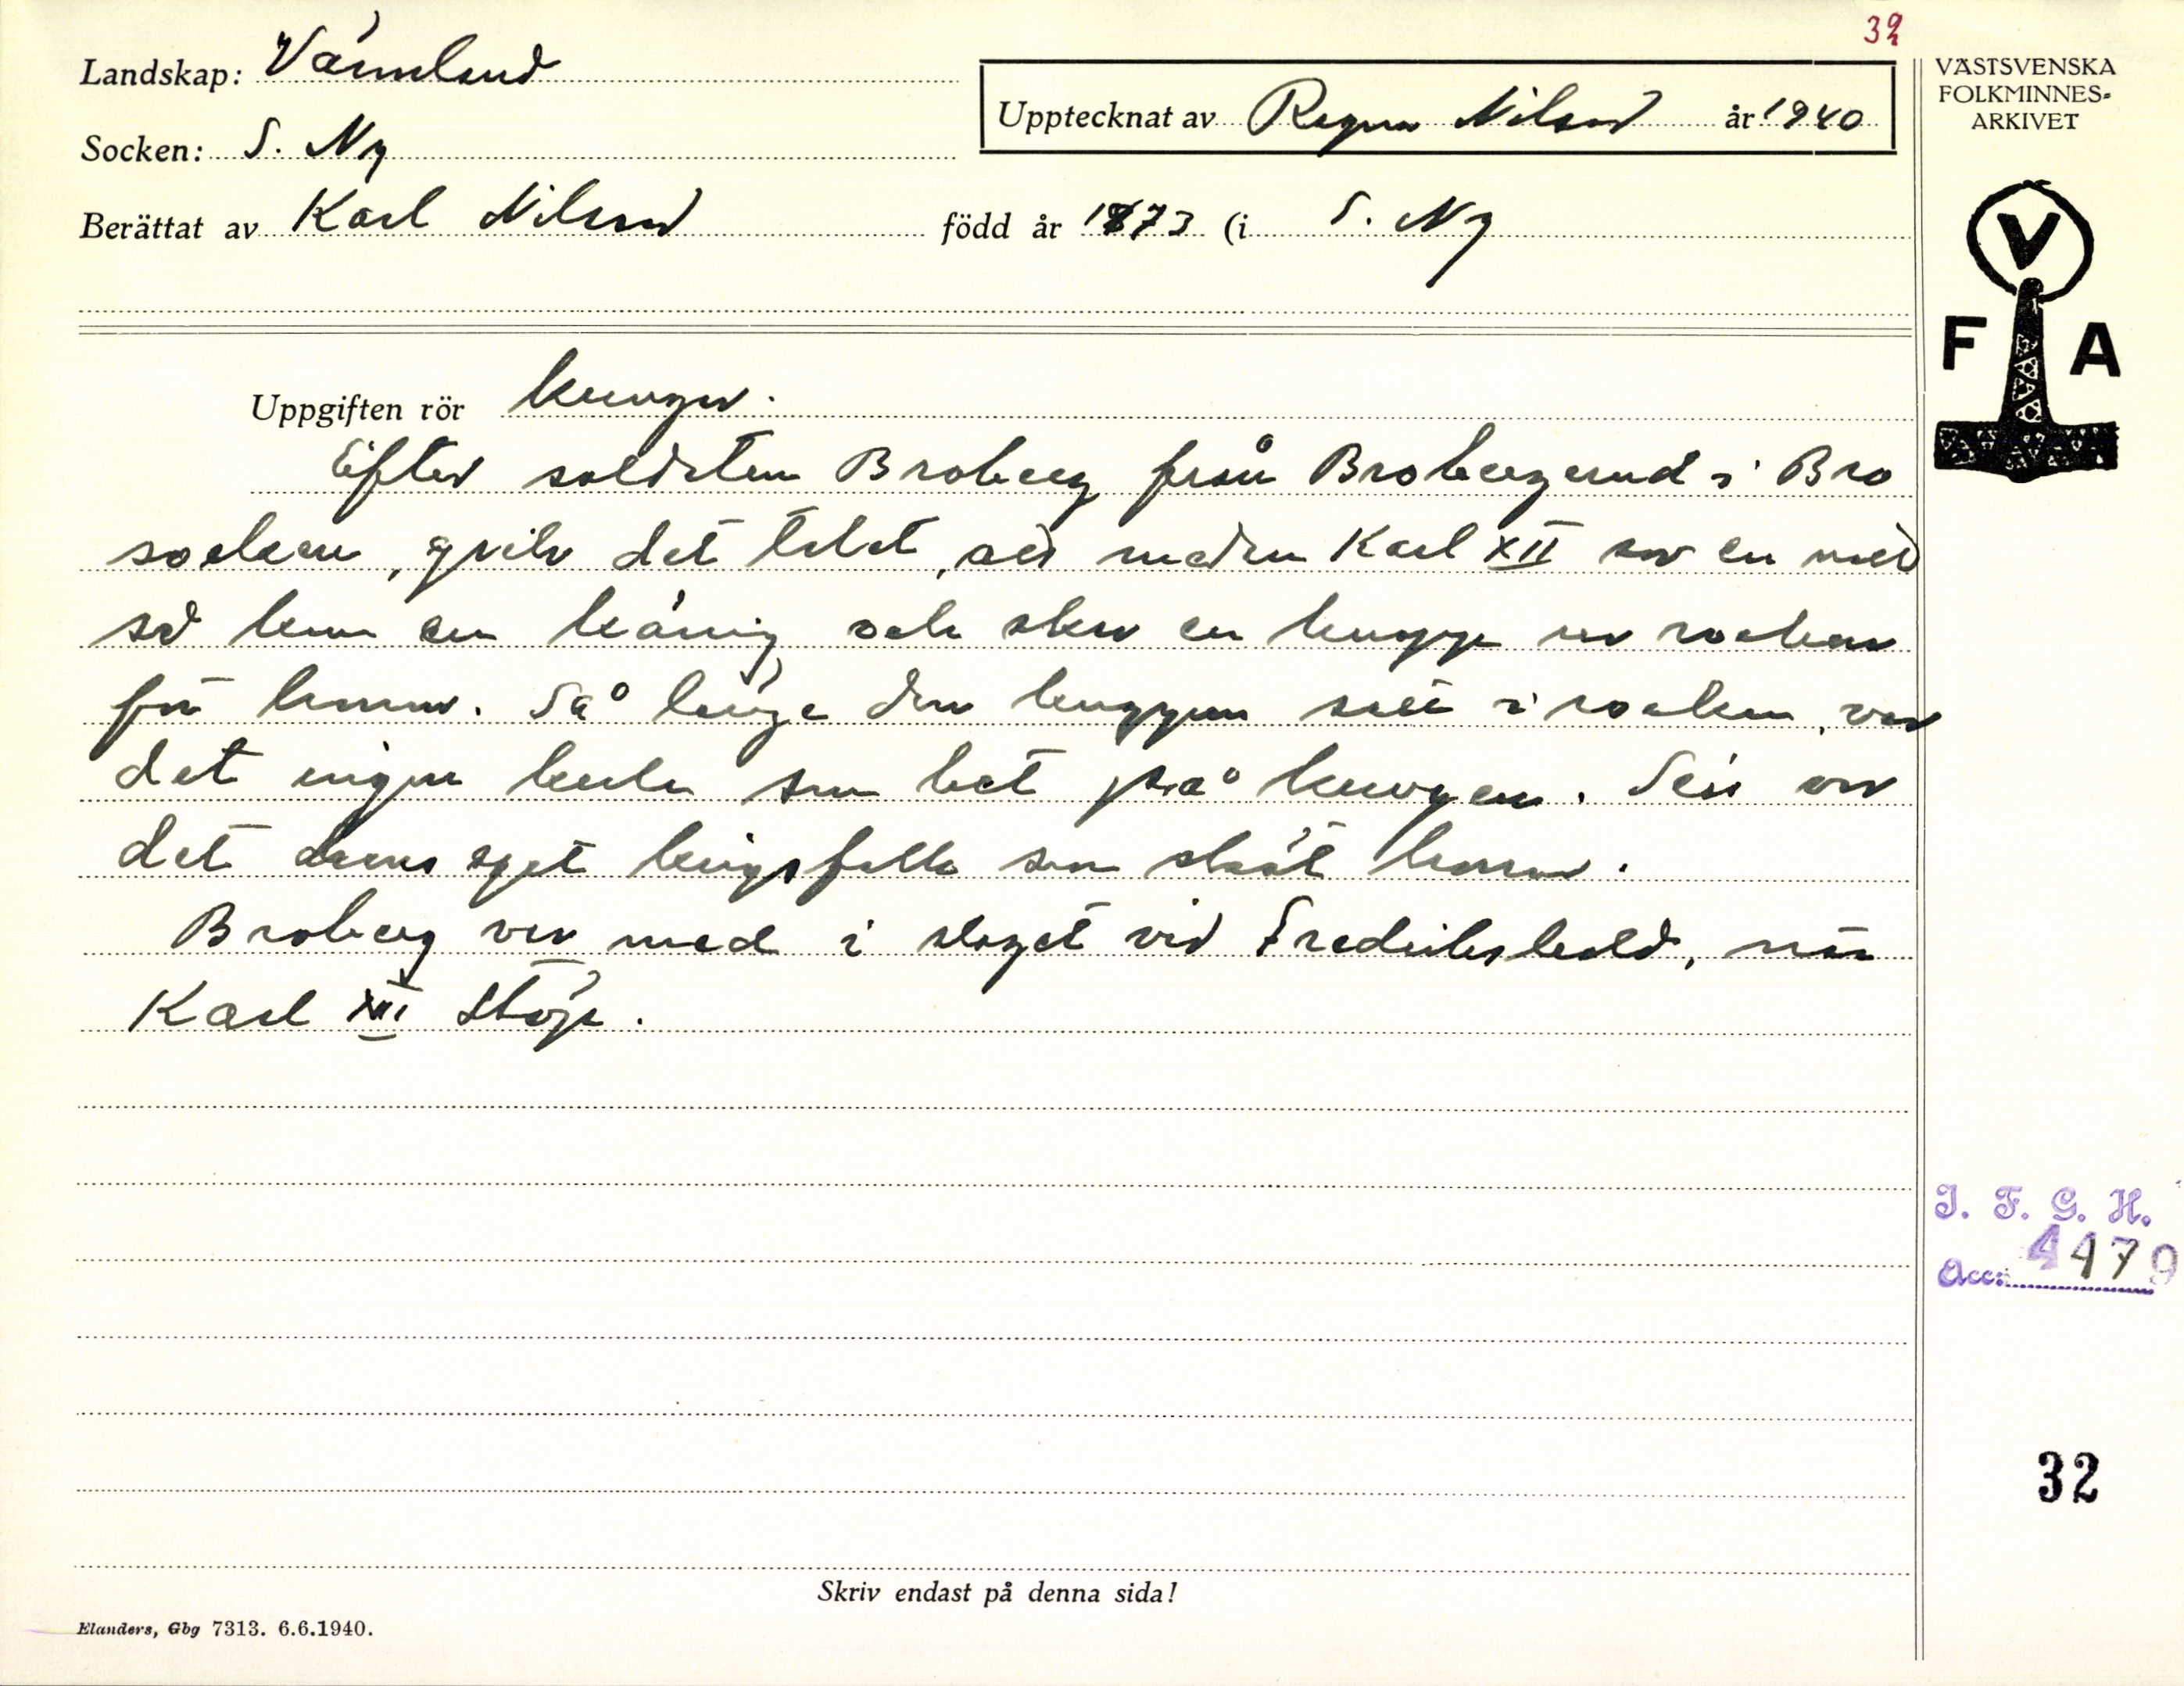 32
Landskap: Värmland
Upptecknat av Ragnar Nilsson år 1940
VÄSTSVENSKA
FOLKMINNES-
ARKIVET
Socken: S. Ny
Berättat av Karl Nilsson född år 1873 (i S. Ny
V
F A
Uppgiften rör kungar.
Efter soldaten Broberg från Brobergsrud i Bro
socken, gick det talet, att medan Karl XII sov en natt
så kom en käring och skar en knapp ur rocken
för honom. Så länge den knappen satt i rocken, var
det ingen kula som bet på kungen. Sen var
det hans eget krigsfolk som sköt honom.
Broberg var med i slaget vid Fredrikshald, när
Karl XII stöp.
I. F. G. H.
Acc: 4479
32
Skriv endast på denna sida!
Elanders, Gbg 7313. 6.6.1940.